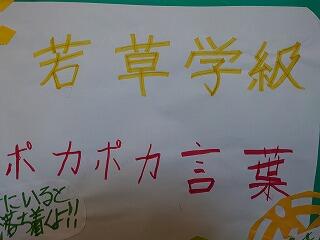 若草学級
ポカポカ言葉
にいると
落ち着くよ!!